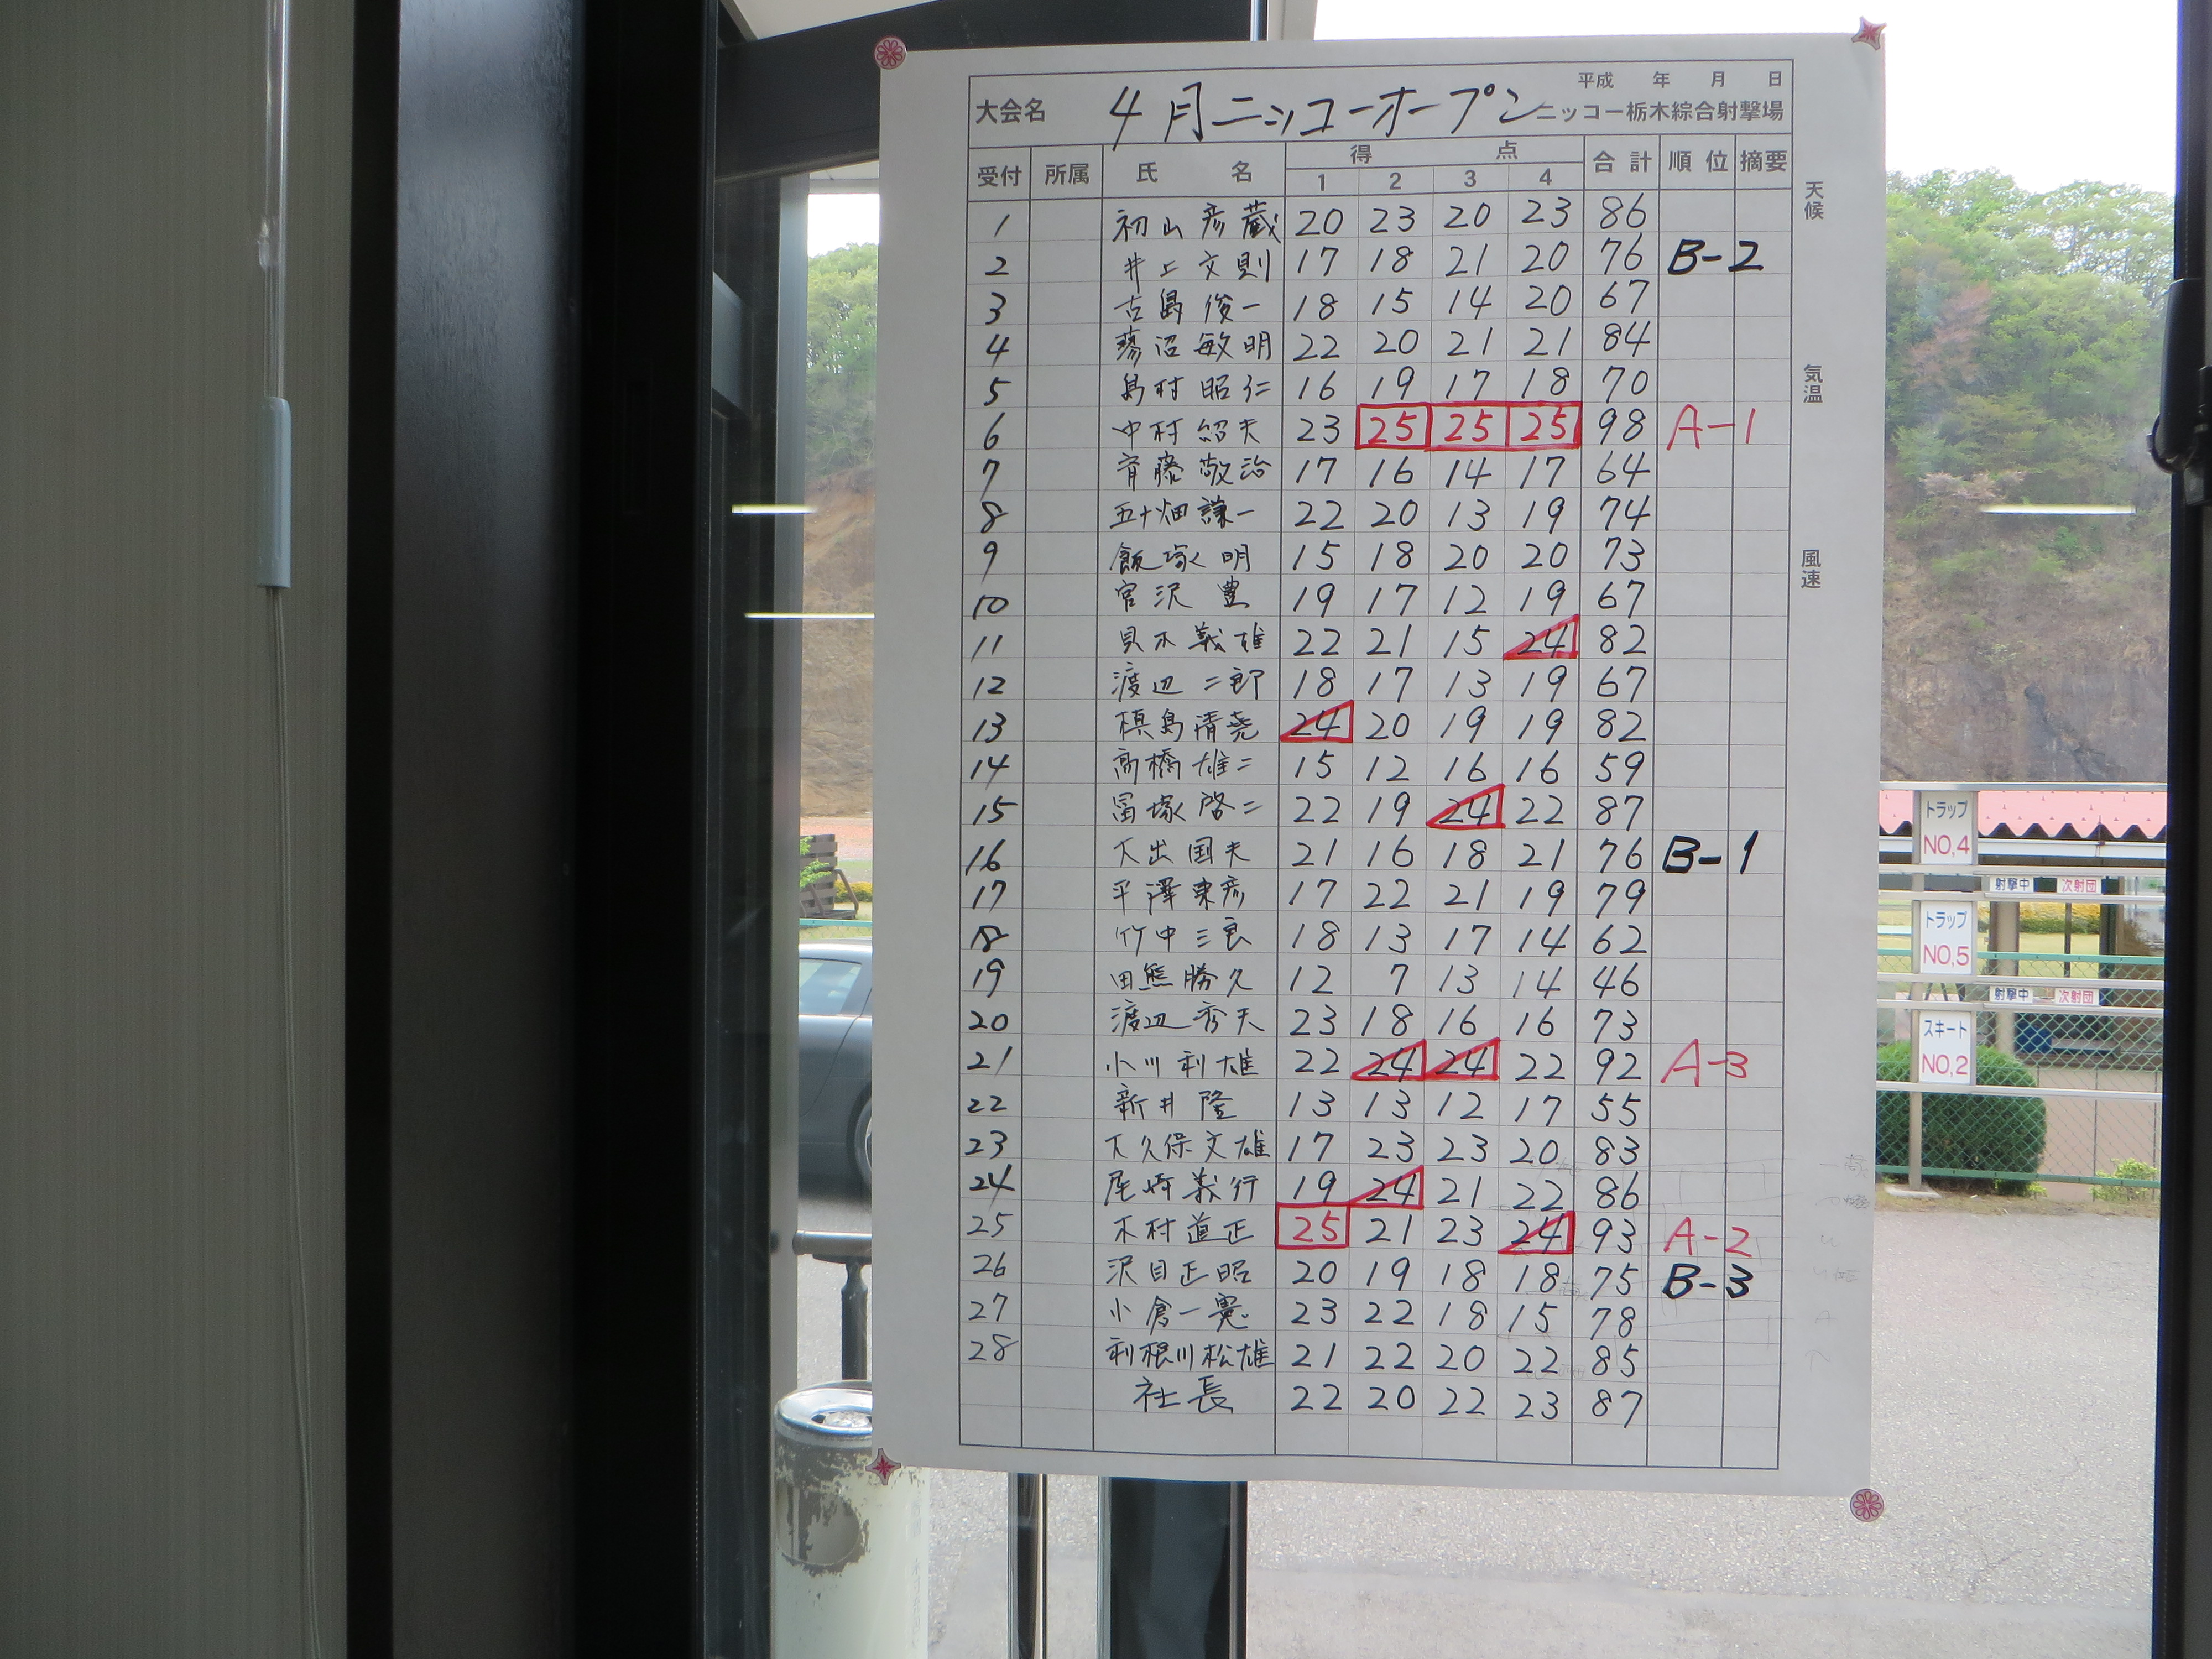 平成 年 月 日
大会名 4月ニッコーオープン ニッコー栃木綜合射撃場
受付 所属 氏 名 得 点 合計 順位 摘要
1 2 3 4
1 初山彦蔵 20 23 20 23 86
2 井上文則 17 18 21 20 76 B-2
3 古島俊一 18 15 14 20 67
4 蓼沼敏明 22 20 21 21 84
5 島村昭仁 16 19 17 18 70
6 中村紹夫 23 25 25 25 98 A-1
7 斉藤敬治 17 16 14 17 64
8 五十畑謙一 22 20 13 19 74
9 飯塚明 15 18 20 20 73
10 宮沢豊 19 17 12 19 67
11 貝木義雄 22 21 15 24 82
12 渡辺二郎 18 17 13 19 67
13 槙島清尭 24 20 19 19 82
14 高橋雄二 15 12 16 16 59
15 冨塚啓二 22 19 24 22 87
16 大出国夫 21 16 18 21 76 B-1
17 平澤東彦 17 22 21 19 79
18 竹中三良 18 13 17 14 62
19 田熊勝久 12 7 13 14 46
20 渡辺秀夫 23 18 16 16 73
21 小川利雄 22 24 24 22 92 A-3
22 新井隆 13 13 12 17 55
23 大久保文雄 17 23 23 20 83
24 尾崎義行 19 24 21 22 86
25 木村道正 25 21 23 24 93 A-2
26 沢目正昭 20 19 18 18 75 B-3
27 小倉一憲 23 22 18 15 78
28 利根川松雄 21 22 20 22 85
社長 22 20 22 23 87
天候
気温
風速
トラップ
NO,4
射撃中 次射団
トラップ
NO,5
射撃中 次射団
スキート
NO,2